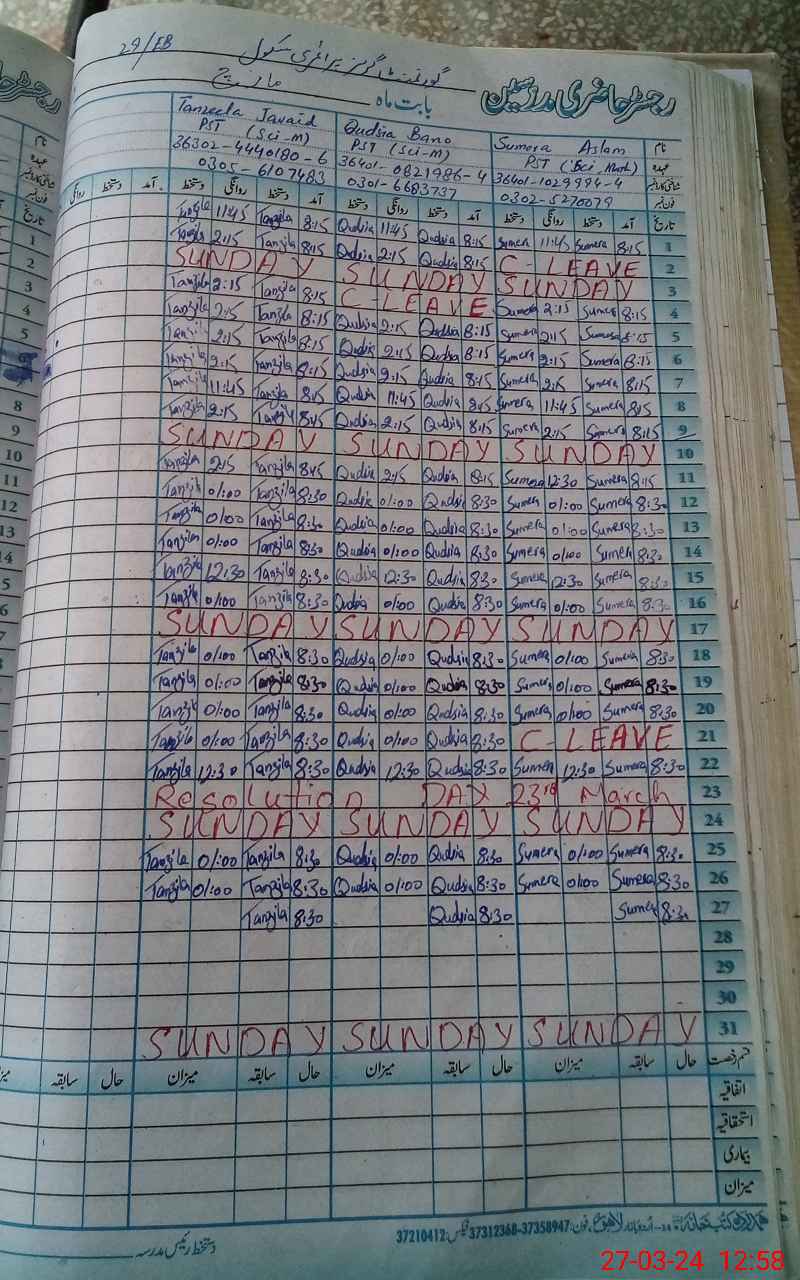 29/EB گورنمنٹ گرلز پرائمری سکول
رجسٹر حاضری مدرسین بابت ماہ مارچ
نام Sumera Aslam Qudsia Bano Tanzeela Javaid
عہدہ PST (Sci-M) PST (Sci-M)
36401-1029994-4 36401-0821986-4 36302-4440180-6
فون نمبر 0302-5270079 0301-6683737 0305-6107483
تاریخ آمد دستخط روانگی دستخط آمد دستخط روانگی دستخط آمد دستخط روانگی دستخط
Tanzila 11:45 Tanzila 8:15 Qudsia 11:45 Qudsia 8:15 Sumera 11:45 Sumera 8:15 1
Tanzila 2:15 Tanzila 8:15 Qudsia 2:15 Qudsia 8:15 C-LEAVE 2
SUNDAY SUNDAY SUNDAY 3
Tanzila 2:15 Tanzila 8:15 C-LEAVE Sumera 2:15 Sumera 8:15 4
Tanzila 2:15 Tanzila 8:15 Qudsia 2:15 Qudsia 8:15 Sumera 2:15 Sumera 8:15 5
Tanzila 2:15 Tanzila 8:15 Qudsia 2:15 Qudsia 8:15 Sumera 2:15 Sumera 8:15 6
Tanzila 2:15 Tanzila 8:15 Qudsia 2:15 Qudsia 8:15 Sumera 2:15 Sumera 8:15 7
Tanzila 11:45 Tanzila 8:15 Qudsia 11:45 Qudsia 8:15 Sumera 11:45 Sumera 8:15 8
Tanzila 2:15 Tanzila 8:15 Qudsia 2:15 Qudsia 8:15 Sumera 2:15 Sumera 8:15 9
SUNDAY SUNDAY SUNDAY 10
Tanzila 2:15 Tanzila 8:15 Qudsia 2:15 Qudsia 8:15 Sumera 12:30 Sumera 8:15 11
Tanzila 01:00 Tanzila 8:30 Qudsia 01:00 Qudsia 8:30 Sumera 01:00 Sumera 8:30 12
Tanzila 01:00 Tanzila 8:30 Qudsia 01:00 Qudsia 8:30 Sumera 01:00 Sumera 8:30 13
Tanzila 01:00 Tanzila 8:30 Qudsia 01:00 Qudsia 8:30 Sumera 01:00 Sumera 8:30 14
Tanzila 12:30 Tanzila 8:30 Qudsia 12:30 Qudsia 8:30 Sumera 12:30 Sumera 8:30 15
Tanzila 01:00 Tanzila 8:30 Qudsia 01:00 Qudsia 8:30 Sumera 01:00 Sumera 8:30 16
SUNDAY SUNDAY SUNDAY 17
Tanzila 01:00 Tanzila 8:30 Qudsia 01:00 Qudsia 8:30 Sumera 01:00 Sumera 8:30 18
Tanzila 01:00 Tanzila 8:30 Qudsia 01:00 Qudsia 8:30 Sumera 01:00 Sumera 8:30 19
Tanzila 01:00 Tanzila 8:30 Qudsia 01:00 Qudsia 8:30 Sumera 01:00 Sumera 8:30 20
Tanzila 01:00 Tanzila 8:30 Qudsia 01:00 Qudsia 8:30 C-LEAVE 21
Tanzila 12:30 Tanzila 8:30 Qudsia 12:30 Qudsia 8:30 Sumera 12:30 Sumera 8:30 22
Resolution DAY 23rd March 23
SUNDAY SUNDAY SUNDAY 24
Tanzila 01:00 Tanzila 8:30 Qudsia 01:00 Qudsia 8:30 Sumera 01:00 Sumera 8:30 25
Tanzila 01:00 Tanzila 8:30 Qudsia 01:00 Qudsia 8:30 Sumera 01:00 Sumera 8:30 26
Tanzila 8:30 Qudsia 8:30 Sumera 8:30 27
28
29
30
SUNDAY SUNDAY SUNDAY 31
قسم رخصت حال سابقہ میزان حال سابقہ میزان حال سابقہ میزان حال سابقہ
اتفاقیہ
استحقاقیہ
بیماری
میزان
اردو بازار لاہور، فون: 37358947-37312368 فیکس: 37210412
دستخط رئیس مدرسہ
27-03-24 12:58